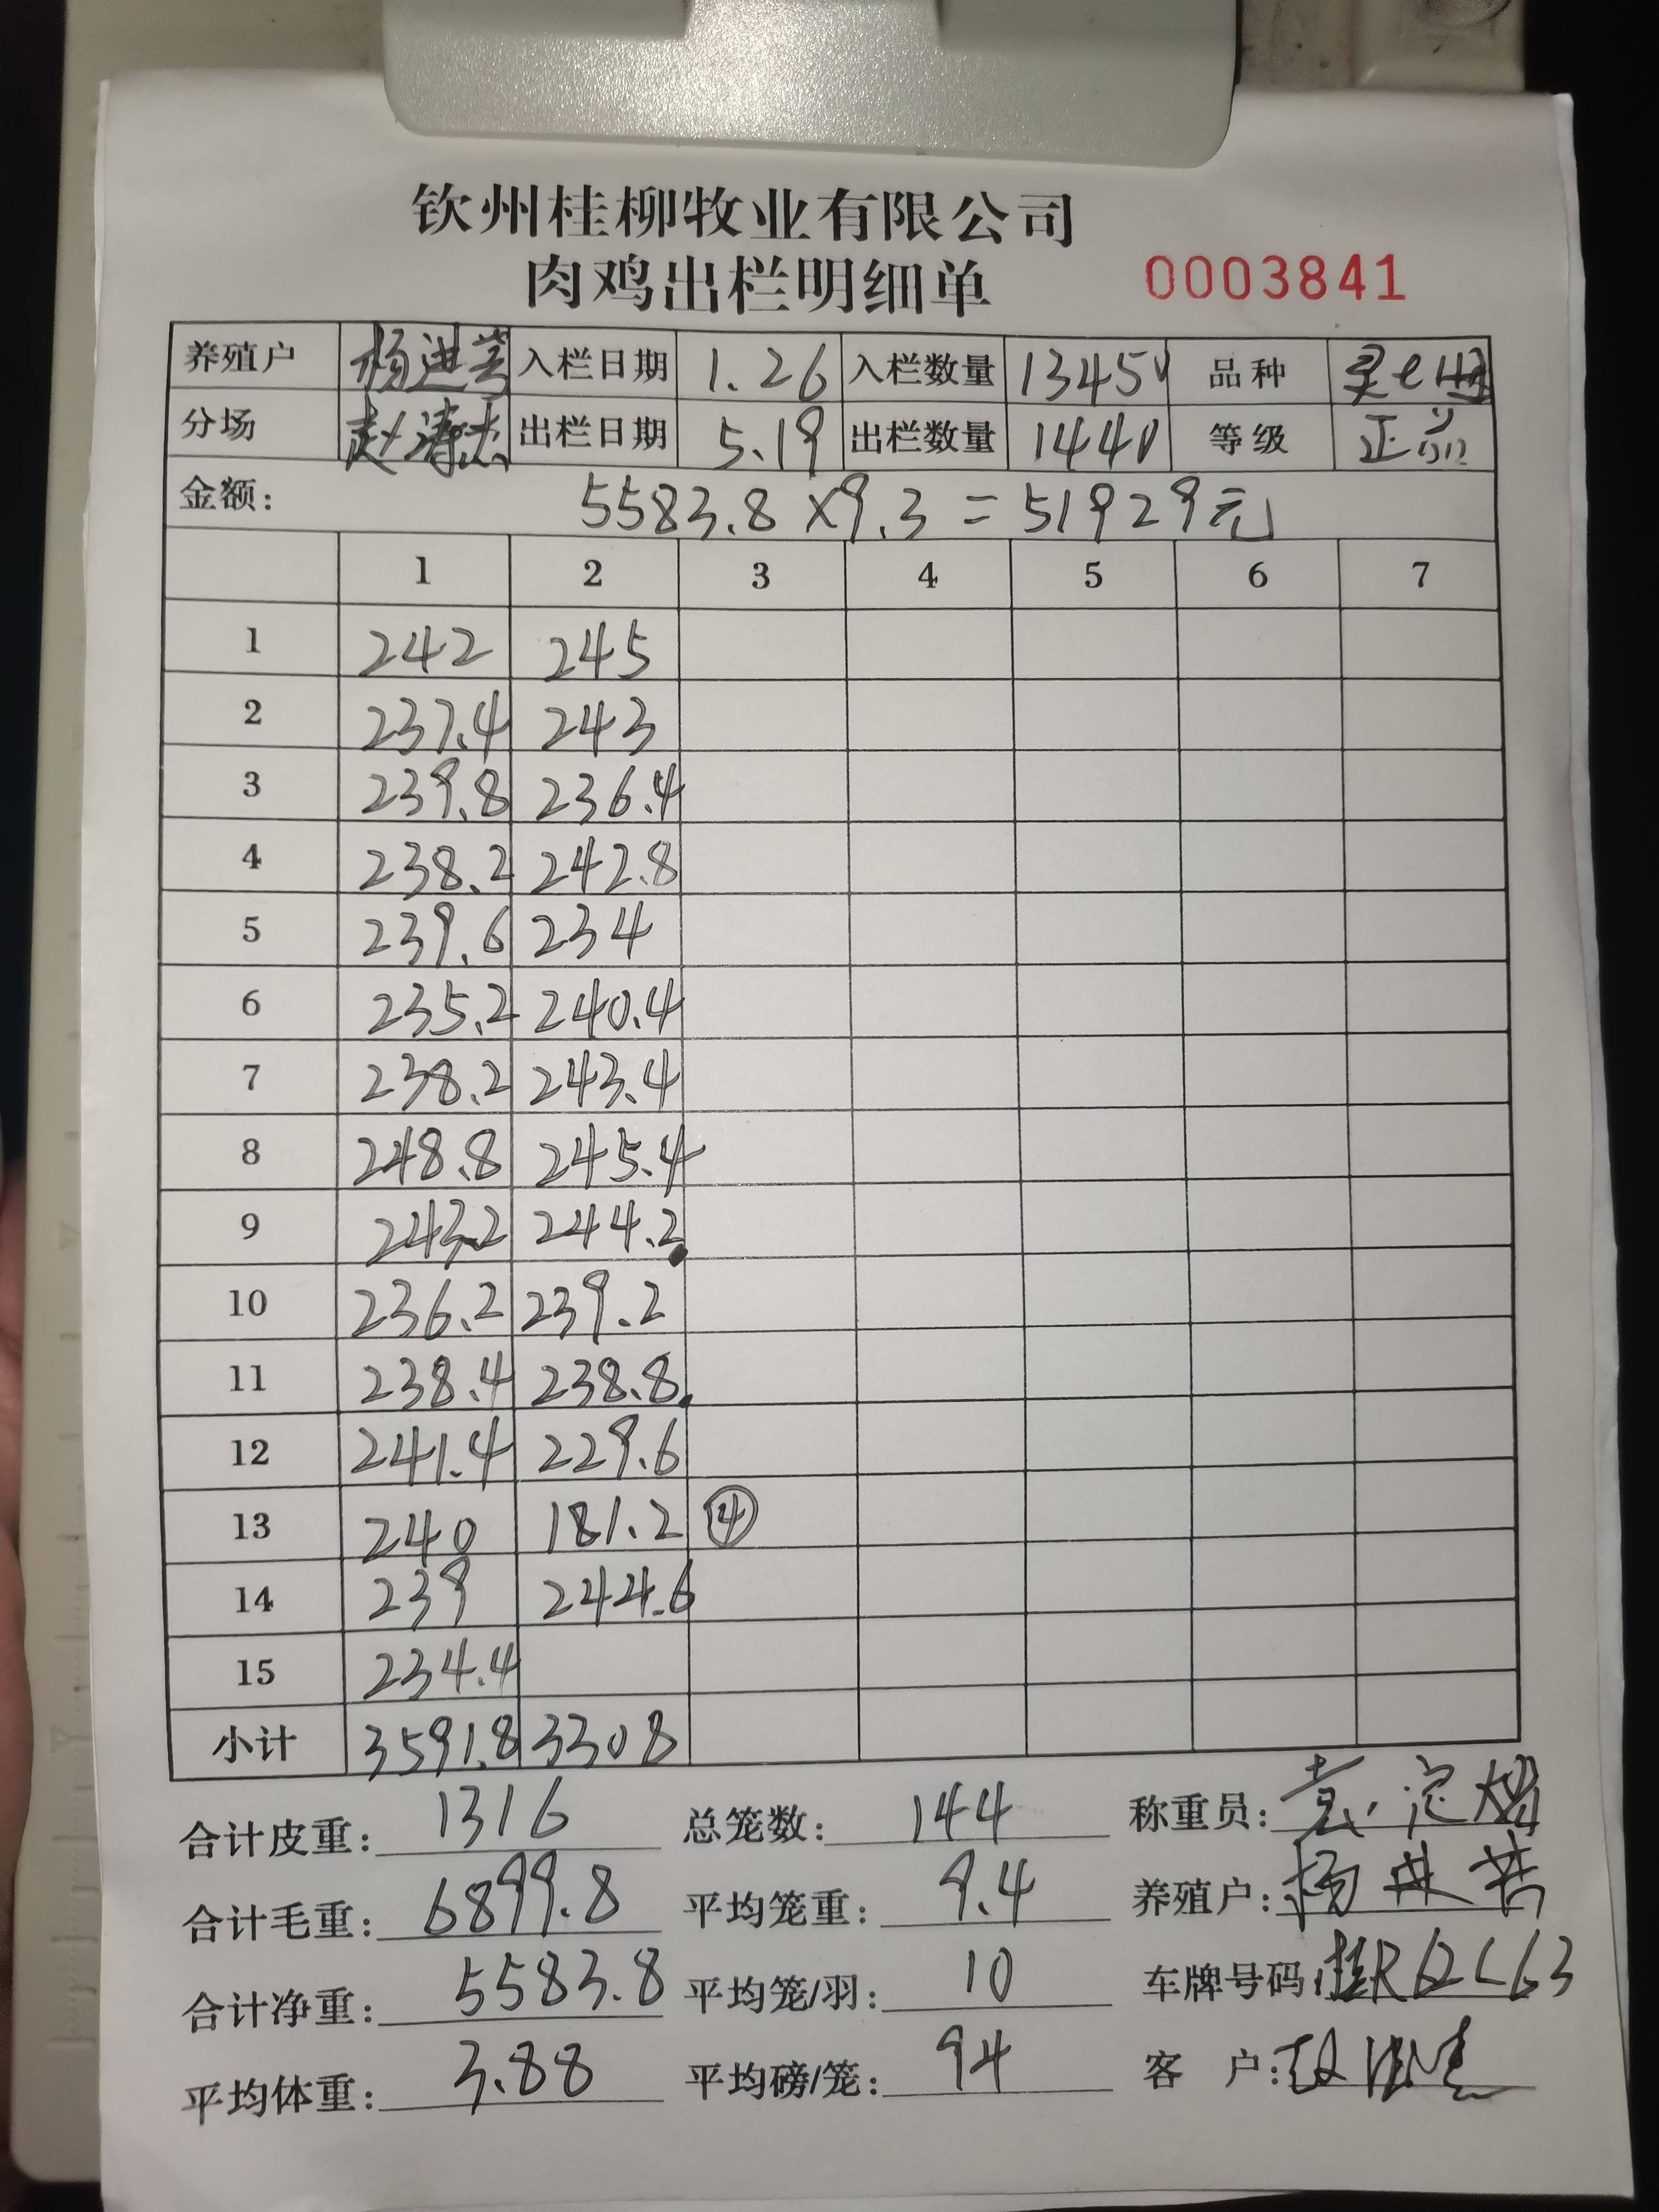 钦州桂柳牧业有限公司
肉鸡出栏明细单 0003841
养殖户 杨进 入栏日期 1.26 入栏数量 13450 品种
分场 赵 出栏日期 5.19 出栏数量 1440 等级 正品
金额: 5583.8×9.3=51929元
1 2 3 4 5 6 7
1 242 245
2 237.4 243
3 239.8 236.4
4 238.2 242.8
5 239.6 234
6 235.2 240.4
7 238.2 243.4
8 248.8 245.4
9 243.2 244.2
10 236.2 239.2
11 238.4 238.8
12 241.4 229.6
13 240 181.2 ④
14 239 244.6
15 234.4
小计 3591.8 3308
合计皮重: 1316 总笼数: 144 称重员:
合计毛重: 6899.8 平均笼重: 9.4 养殖户: 杨进
合计净重: 5583.8 平均笼/羽: 10 车牌号码:
平均体重: 3.88 平均磅/笼: 94 客户: